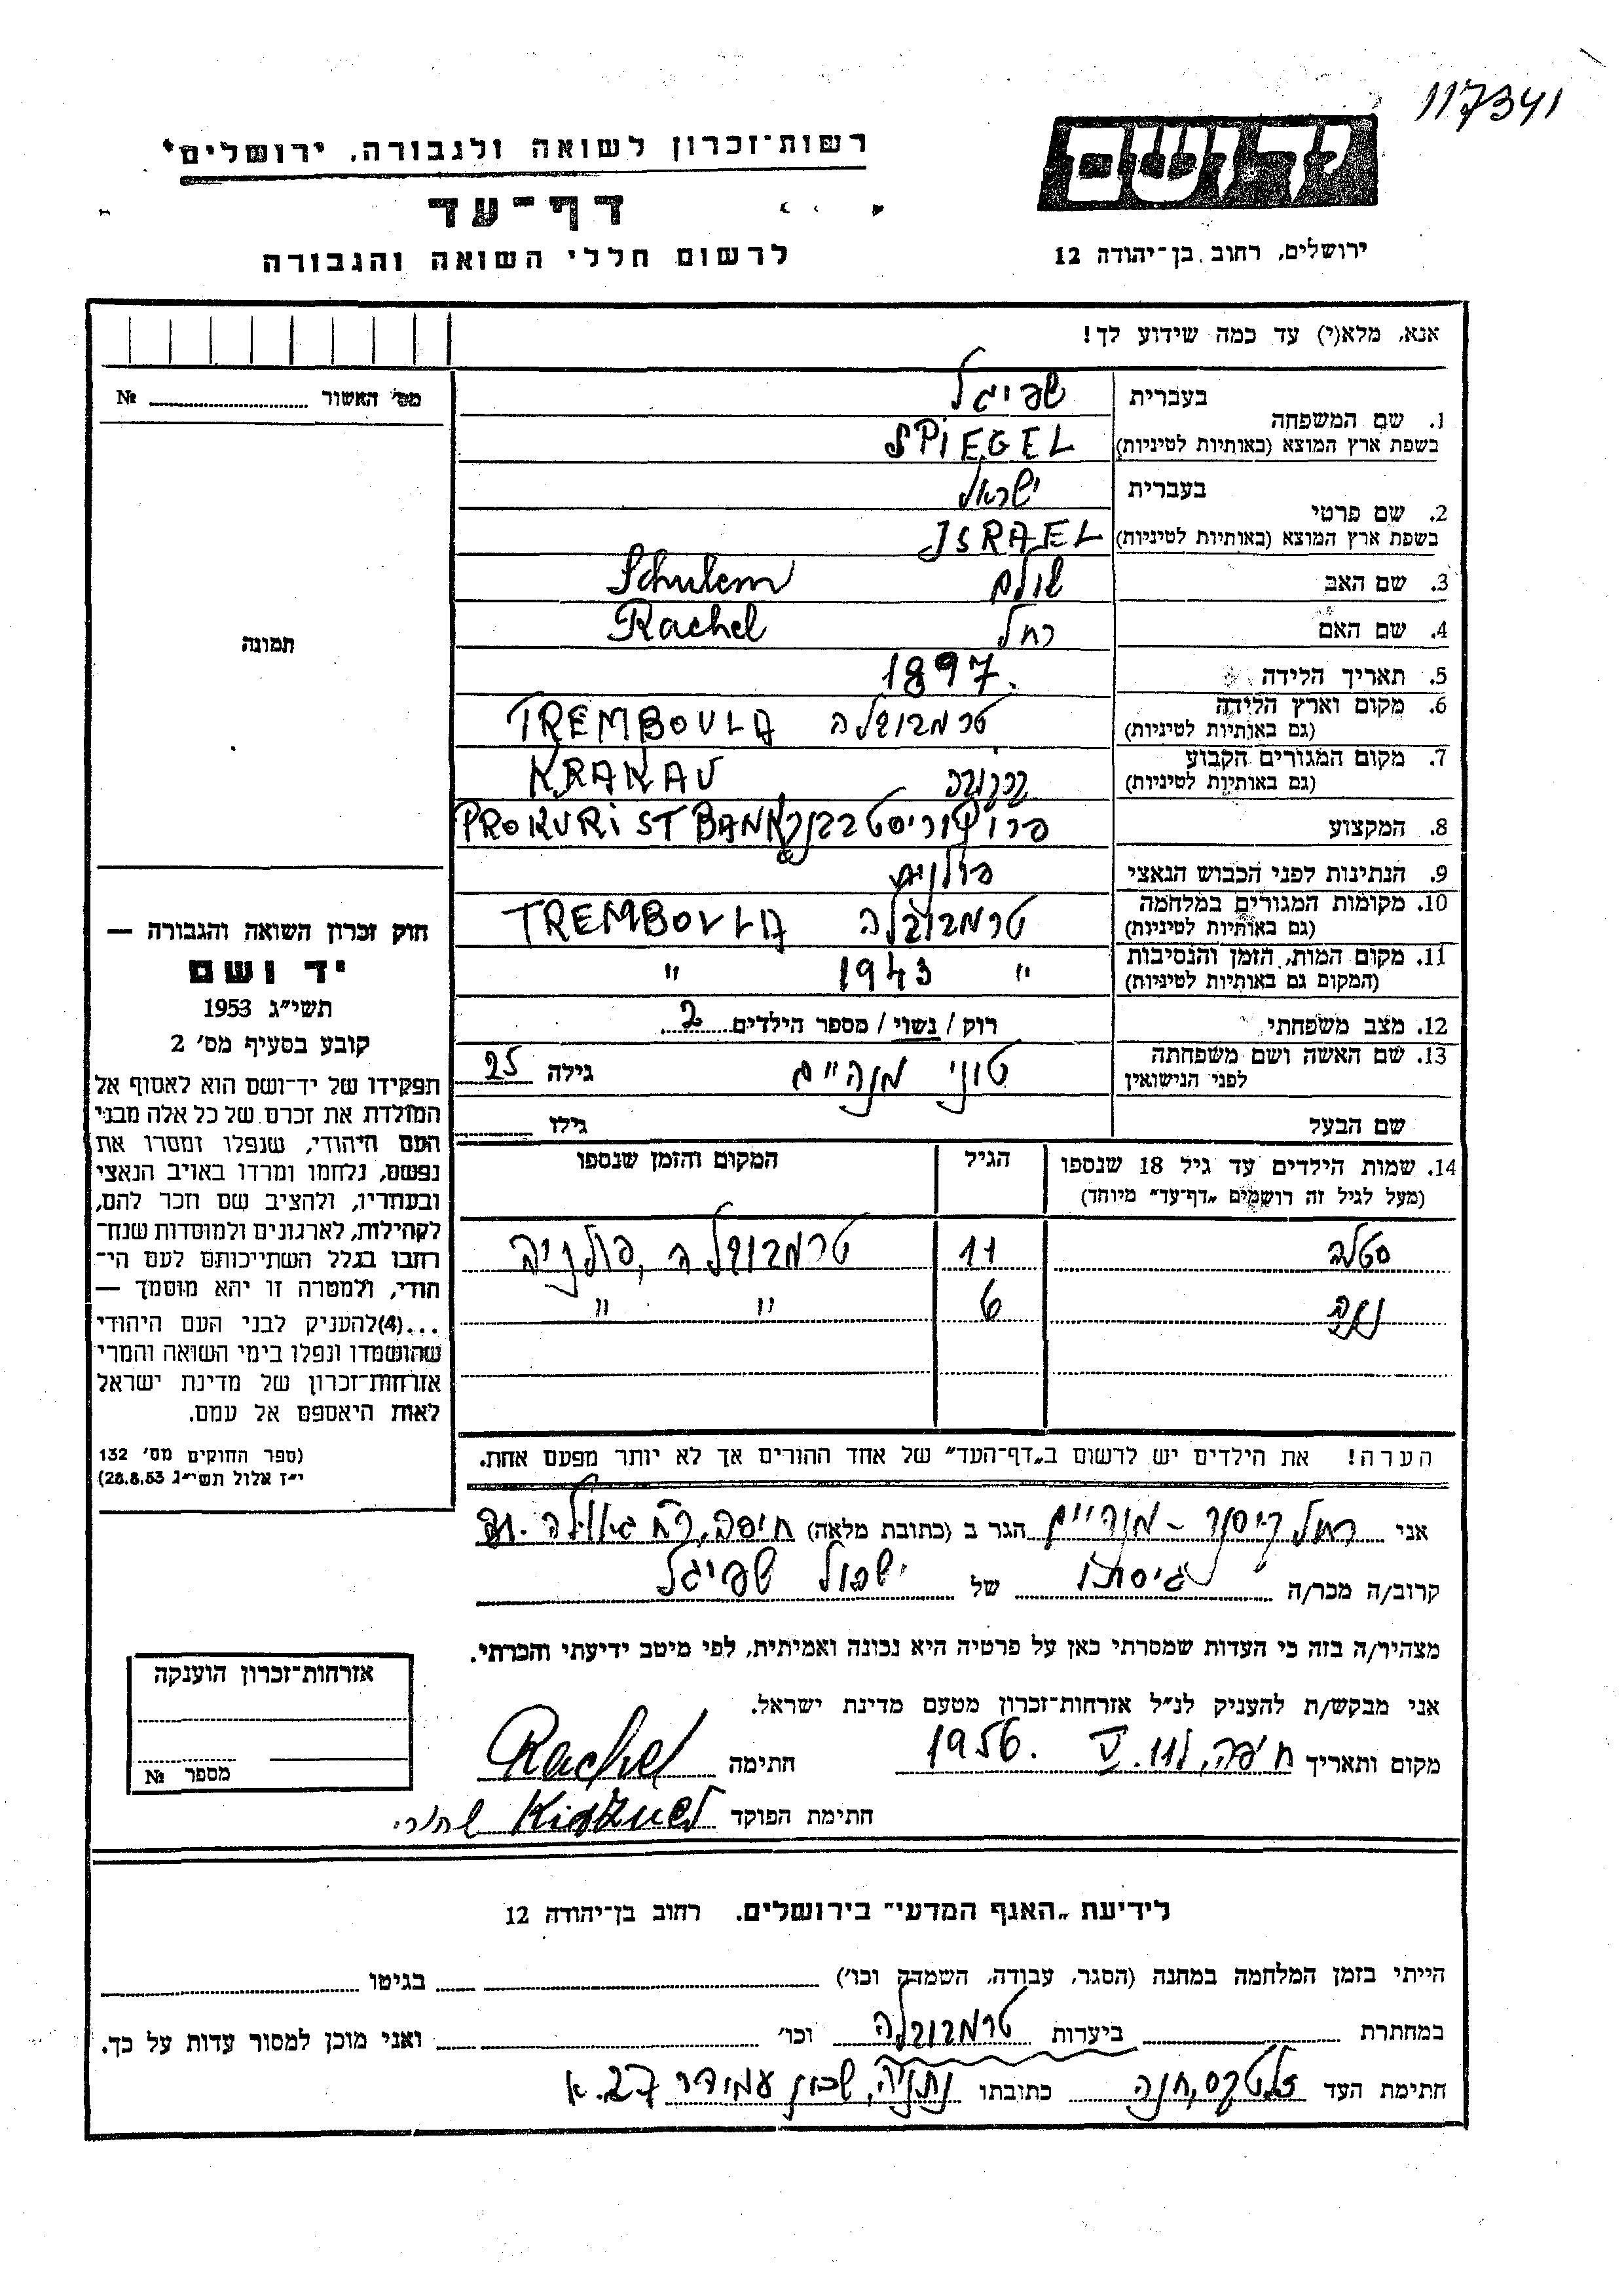 117341
רשות־זכרון לשואה ולגבורה, ירושלים
יד ושם
דף־עד
לרשום חללי השואה והגבורה
ירושלים, רחוב בן־יהודה 12
אנא, מלא(י) עד כמה שידוע לך!
מס׳ האשור № 
1. שם המשפחה
בעברית שפיגל
בשפת ארץ המוצא (באותיות לטיניות) SPiEGEL
2. שם פרטי
בעברית ישראל
בשפת ארץ המוצא (באותיות לטיניות) JSRAEL
3. שם האב שולם Schulem
4. שם האם רחל Rachel
5. תאריך הלידה 1897.
6. מקום וארץ הלידה
(גם באותיות לטיניות) טרמבובלה TREMBOVLA
7. מקום המגורים הקבוע
(גם באותיות לטיניות) קרקוב KRAKAU
8. המקצוע פרוקוריסט בבנק PROKURiST BANK
9. הנתינות לפני הכבוש הנאצי פולנית
10. מקומות המגורים במלחמה
(גם באותיות לטיניות) טרמבובלה TREMBOVLA
11. מקום המות, הזמן והנסיבות
(המקום גם באותיות לטיניות) " 1943 "
12. מצב משפחתי רוק / נשוי / מספר הילדים 2
13. שם האשה ושם משפחתה
לפני הנישואין טוני מנהיים גילה 25
שם הבעל גילו
14. שמות הילדים עד גיל 18 שנספו
(מעל לגיל זה רושמים „דף־עד״ מיוחד)
הגיל
המקום והזמן שנספו
סטלה 11 טרמבובלה, פולניה
6 " "
הערה! את הילדים יש לרשום ב„דף־העד״ של אחד ההורים אך לא יותר מפעם אחת.
תמונה
חוק זכרון השואה והגבורה —
יד ושם
תשי״ג 1953
קובע בסעיף מס׳ 2
תפקידו של יד־ושם הוא לאסוף אל
המולדת את זכרם של כל אלה מבני
העם היהודי, שנפלו ומסרו את
נפשם, נלחמו ומרדו באויב הנאצי
ובעוזריו, ולהציב שם וזכר להם,
לקהילות, לארגונים ולמוסדות שנח־
רבו בגלל השתייכותם לעם הי־
הודי, ולמטרה זו יהא מוסמך —
...(4)להעניק לבני העם היהודי
שהושמדו ונפלו בימי השואה והמרי
אזרחות־זכרון של מדינת ישראל
לאות היאספם אל עמם.
(ספר החוקים מס׳ 132
י״ז אלול תשי״ג 28.8.53)
אני רחל מנהיים הגר ב (כתובת מלאה) חיפה, רח גאולה
קרוב/ה מכר/ה גיסתו של ישראל שפיגל
מצהיר/ה בזה כי העדות שמסרתי כאן על פרטיה היא נכונה ואמיתית, לפי מיטב ידיעתי והכרתי.
אני מבקש/ת להעניק לנ״ל אזרחות־זכרון מטעם מדינת ישראל.
מקום ותאריך חיפה, V. 1956 חתימה Rachel
חתימת הפוקד
אזרחות־זכרון הוענקה
מספר №
לידיעת „האגף המדעי״ בירושלים. רחוב בן־יהודה 12
הייתי בזמן המלחמה במחנה (הסגר, עבודה, השמדה וכו׳) בגיטו
במחתרת ביערות טרמבובלה וכו׳ ואני מוכן למסור עדות על כך.
חתימת העד חנה כתובתו נתניה, שכון עמידר 27.א